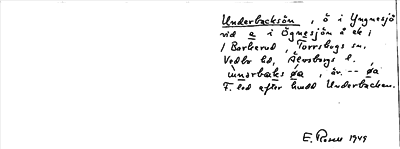 Underbacksön, ö i Yngnesjö
vid a i Ögnesjön å ek i
/ Borberud, Torrskogs sn.
Vedbo hd, Älvsborgs l.
unərbaks øa, äv. -- øa
F. led efter hmdd Underbacken.
E. Rosell 1949